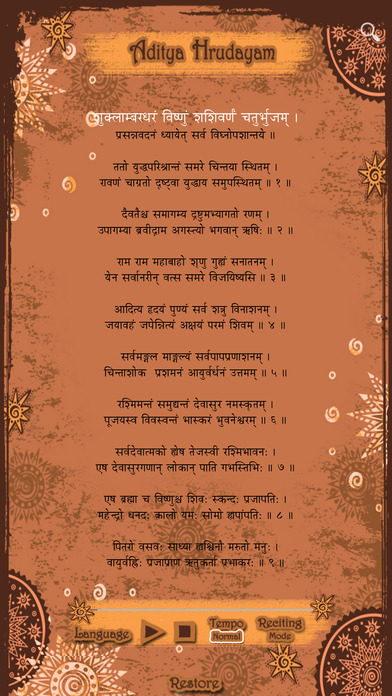 Aditya Hrudayam
शुक्लाम्बरधरं विष्णुं शशिवर्णं चतुर्भुजम् ।
प्रसन्नवदनं ध्यायेत् सर्व विघ्नोपशान्तये ॥
ततो युद्धपरिश्रान्तं समरे चिन्तया स्थितम् ।
रावणं चाग्रतो दृष्ट्वा युद्धाय समुपस्थितम् ॥ १ ॥
दैवतैश्च समागम्य द्रष्टुमभ्यागतो रणम् ।
उपागम्या ब्रवीद्राम अगस्त्यो भगवान् ऋषिः ॥ २ ॥
राम राम महाबाहो शृणु गुह्यं सनातनम् ।
येन सर्वानरीन् वत्स समरे विजयिष्यसि ॥ ३ ॥
आदित्य हृदयं पुण्यं सर्व शत्रु विनाशनम् ।
जयावहं जपेन्नित्यं अक्षयं परमं शिवम् ॥ ४ ॥
सर्वमङ्गल माङ्गल्यं सर्वपापप्रणाशनम् ।
चिन्ताशोक प्रशमनं आयुर्वर्धनं उत्तमम् ॥ ५ ॥
रश्मिमन्तं समुद्यन्तं देवासुर नमस्कृतम् ।
पूजयस्व विवस्वन्तं भास्करं भुवनेश्वरम् ॥ ६ ॥
सर्वदेवात्मको ह्येष तेजस्वी रश्मिभावनः ।
एष देवासुरगणान् लोकान् पाति गभस्तिभिः ॥ ७ ॥
एष ब्रह्मा च विष्णुश्च शिवः स्कन्दः प्रजापतिः ।
महेन्द्रो धनदः कालो यमः सोमो ह्यपांपतिः ॥ ८ ॥
पितरो वसवः साध्या ह्यश्विनौ मरुतो मनुः ।
वायुर्वह्निः प्रजाप्राण ऋतुकर्ता प्रभाकरः ॥ ९ ॥
Language
Tempo
Normal
Reciting
Mode
Restore